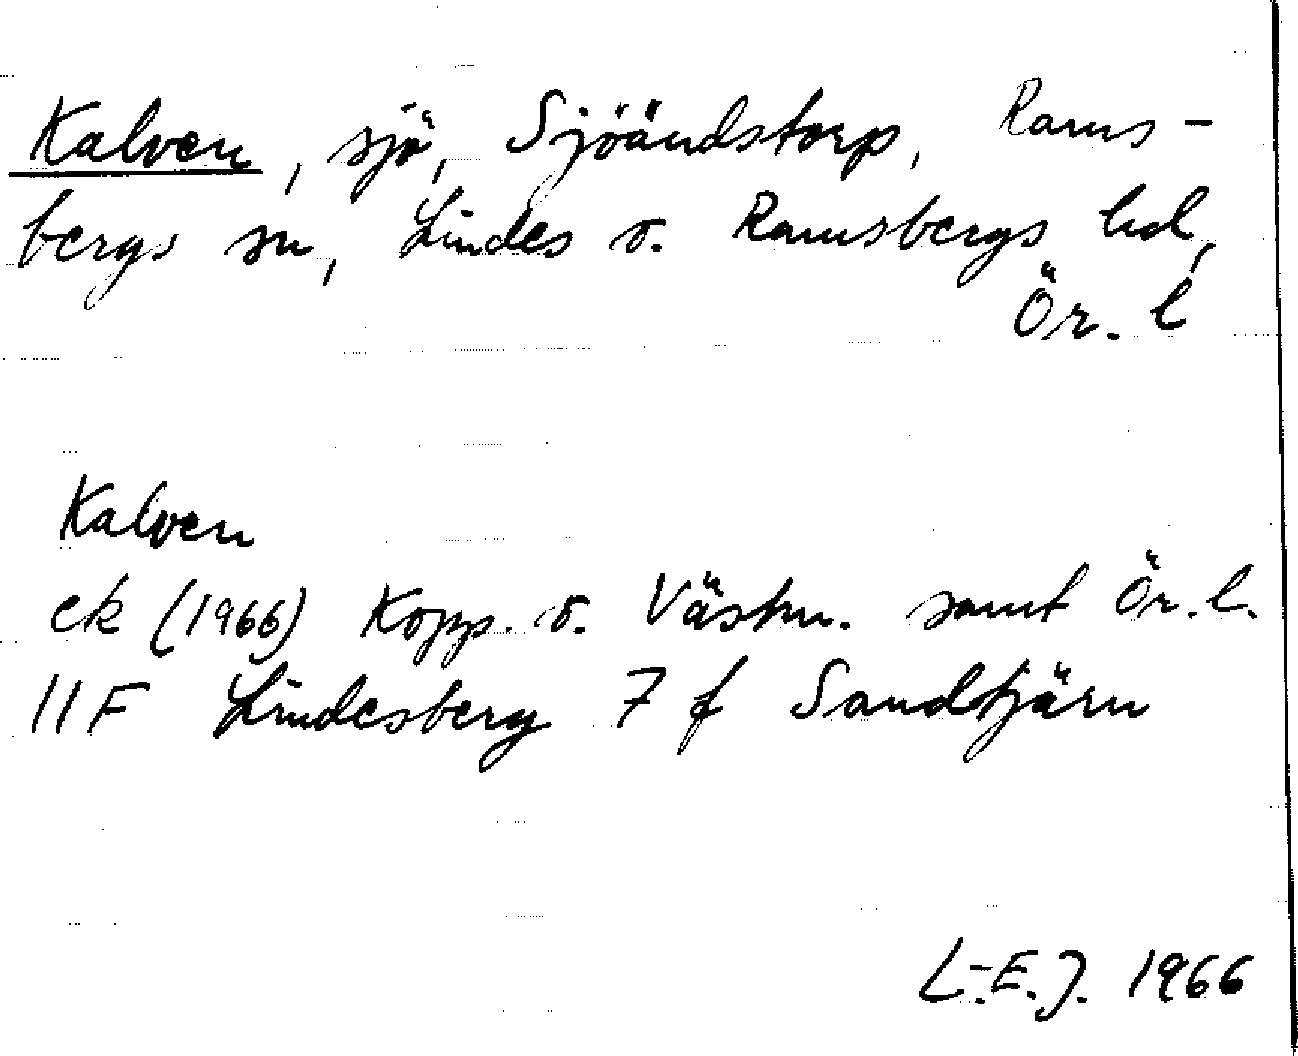 Kalven, sjö, Sjöändstorp, Rams-
bergs sn, Lindes o. Ramsbergs hd,
Ör. l
Kalven
ek (1966) Kopp. o. Västm. samt Ör. l.
11F Lindesberg 7 f Sandtjärn
L.-E.J. 1966